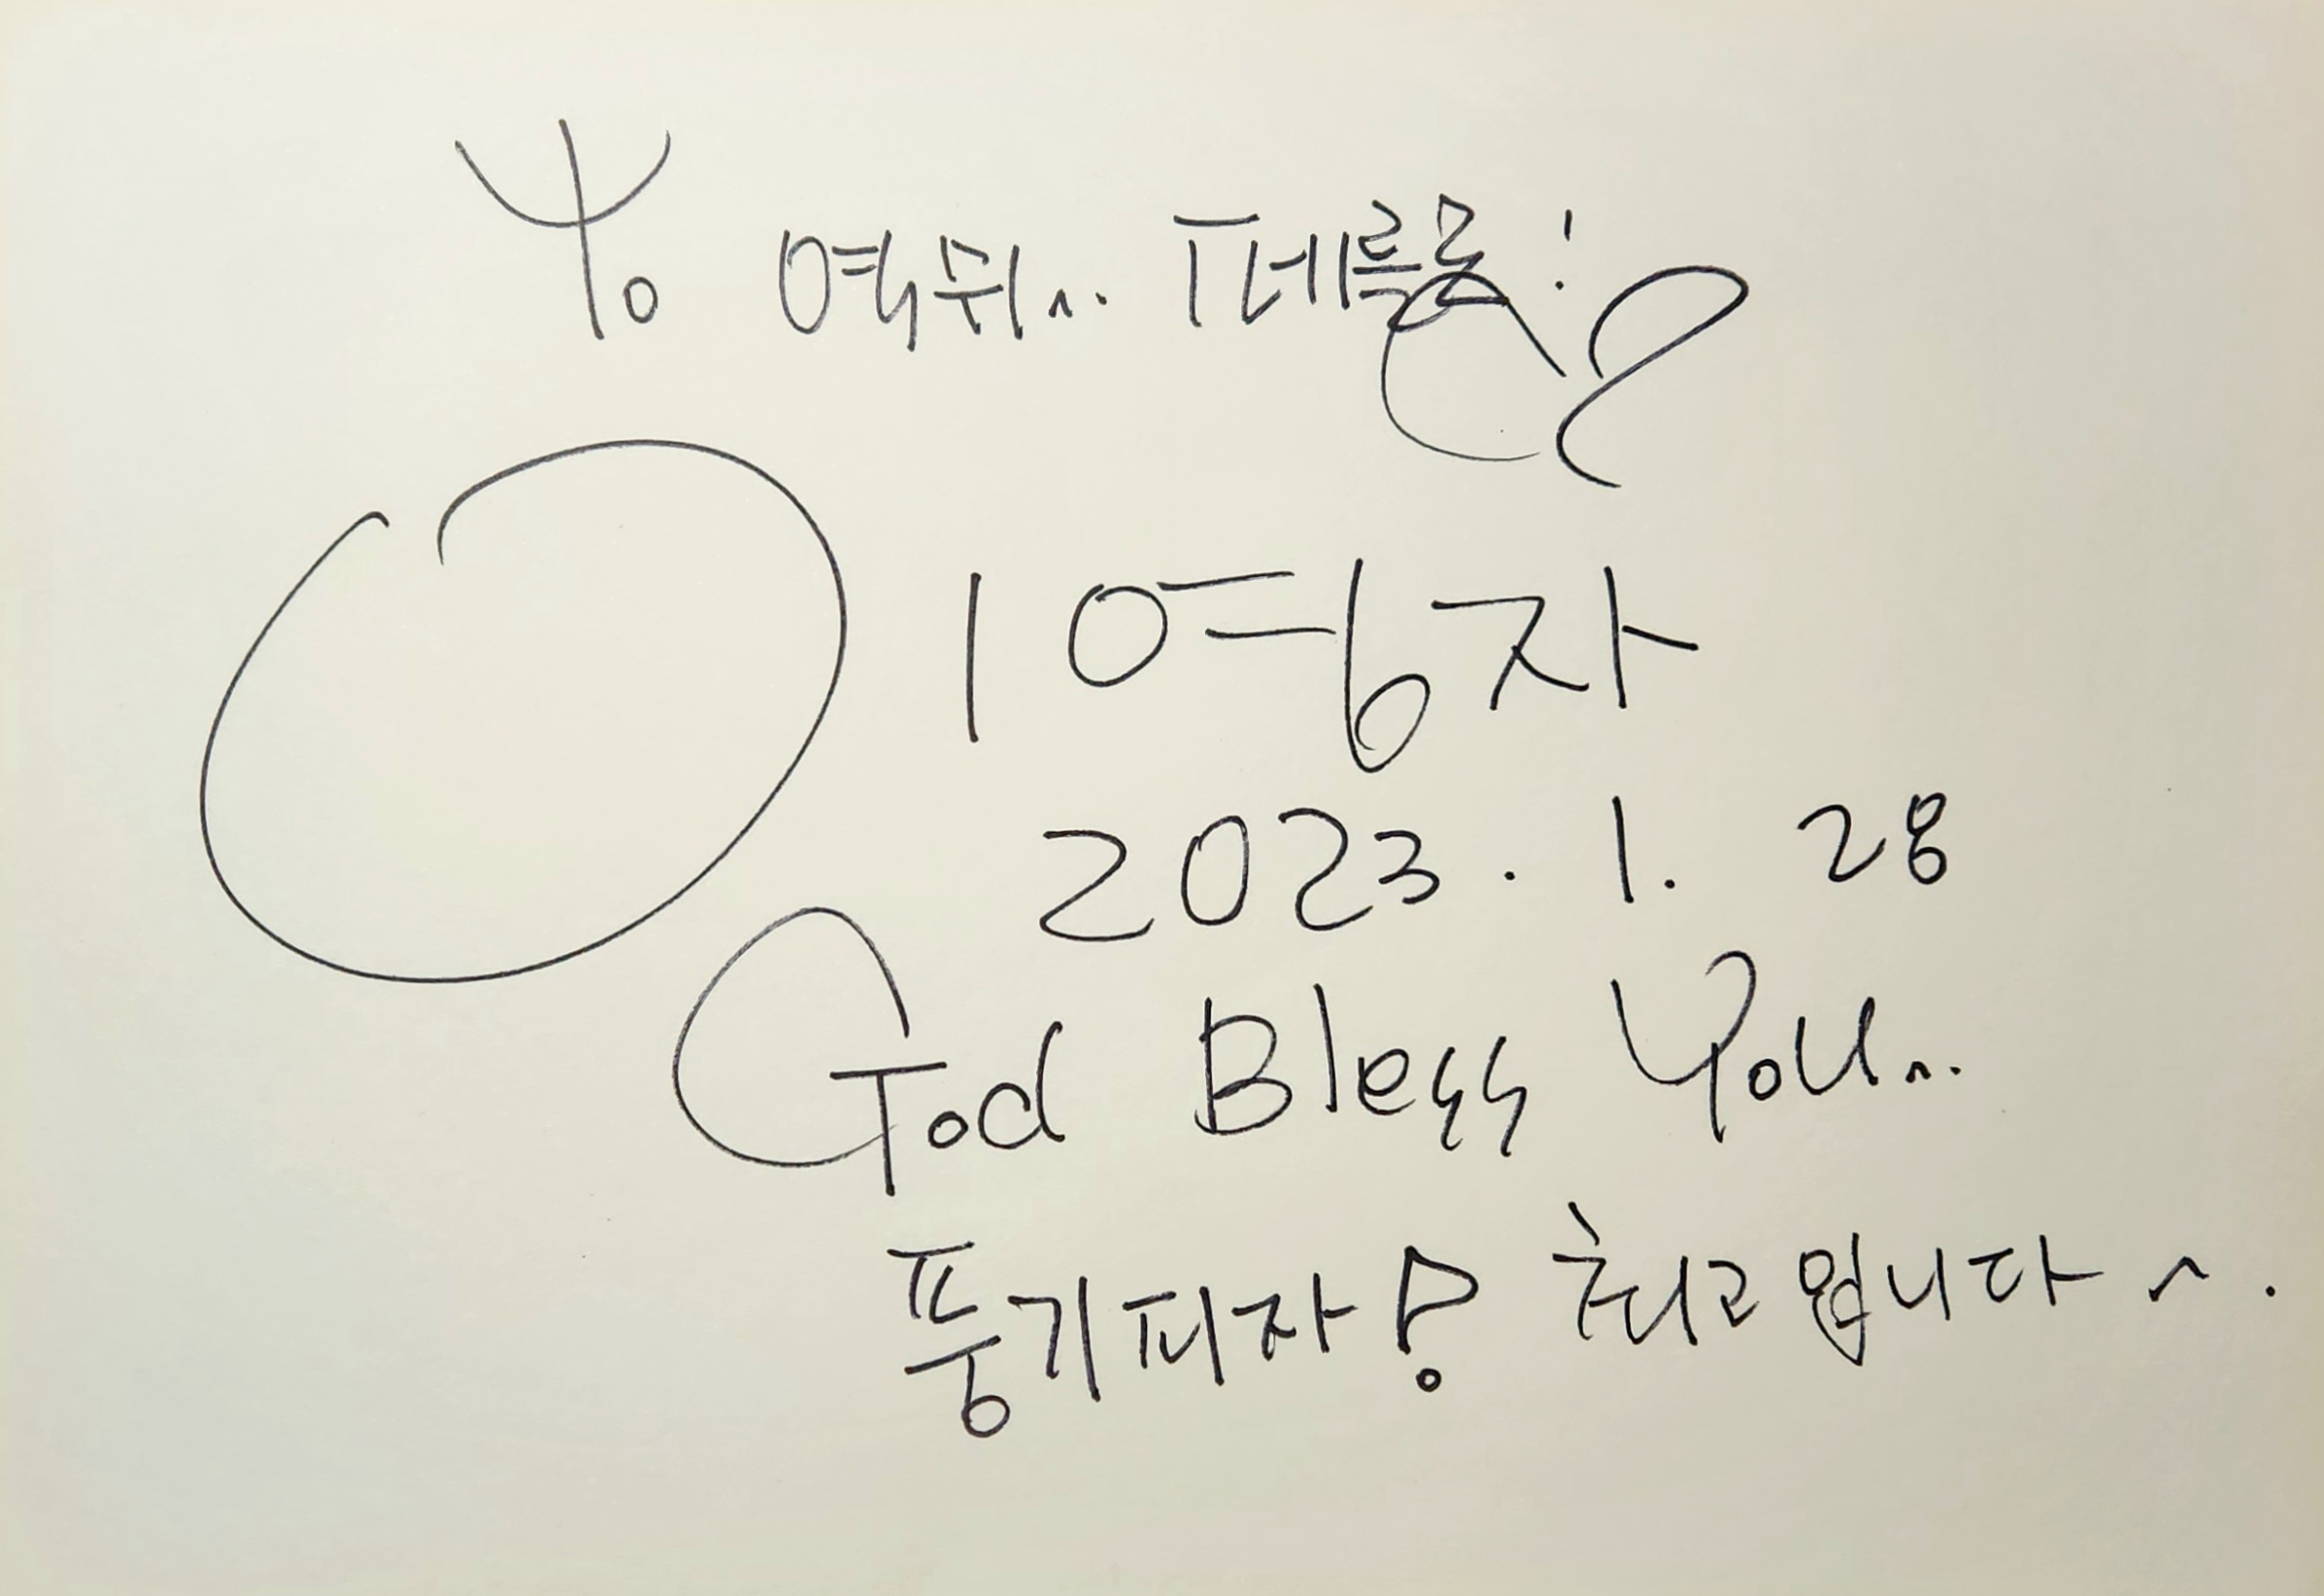 Yo
이영자
2023. 1. 28
God Bless You~.
풍기피자! 최고입니다~.